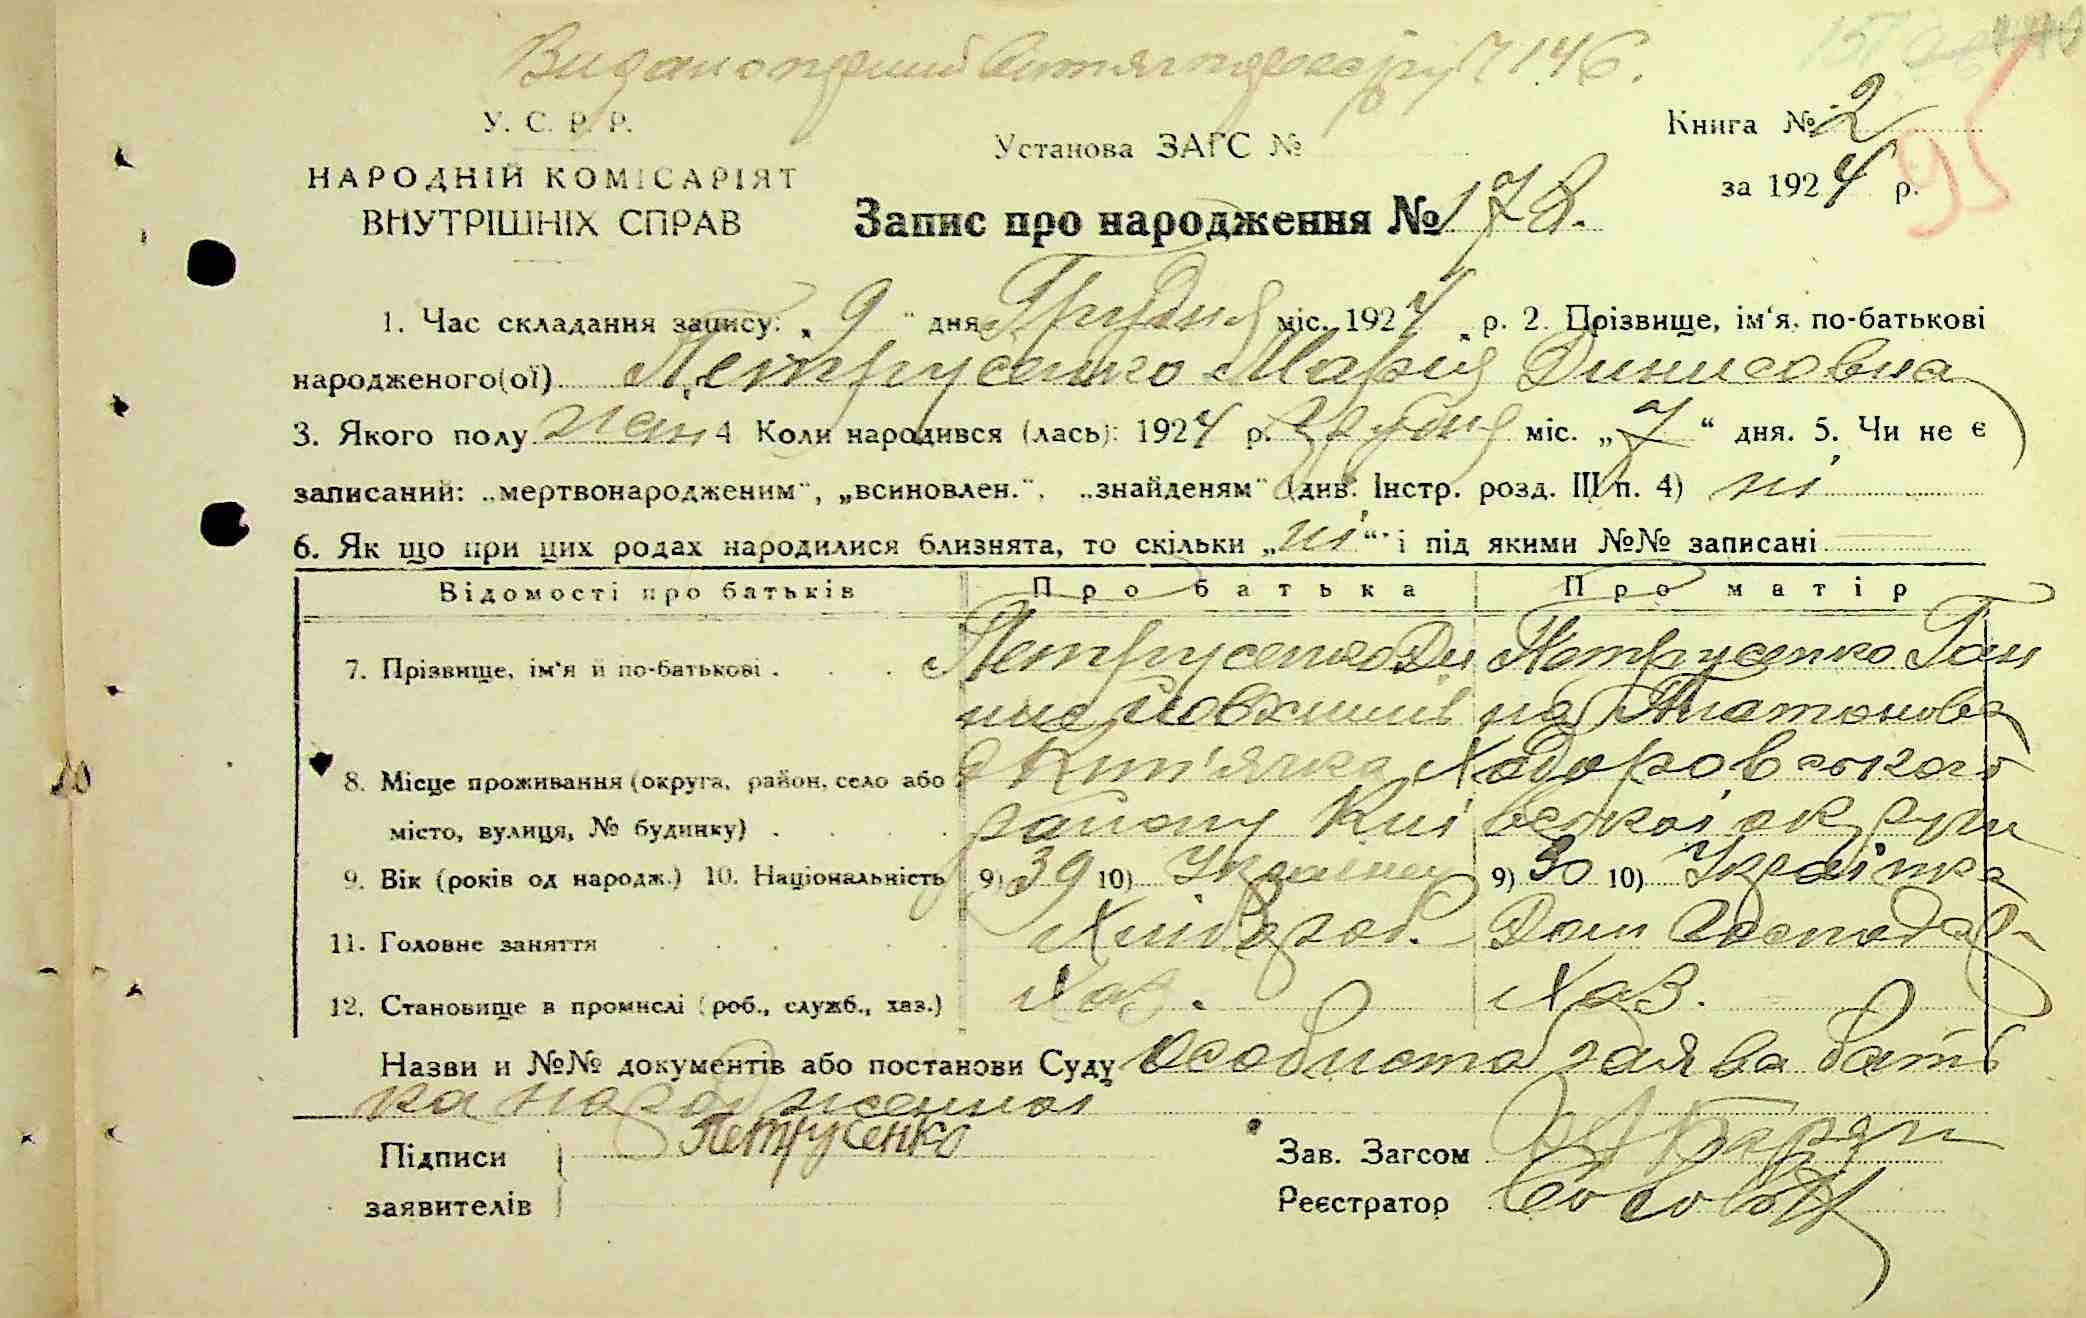 Видано перший витяг по реєстру № 146.
У. С. Р. Р.
НАРОДНІЙ КОМІСАРІЯТ
ВНУТРІШНІХ СПРАВ
Установа ЗАГС №
Книга № 2
за 1924 р.
95
Запис про народження № 178.
1. Час складання запису: „9" дня Грудня міс. 1924 р. 2. Прізвище, ім‘я, по-батькові
народженого(ої) Петрусенко Марія Динисовна
3. Якого полу жін 4 Коли народився (лась): 1924 р. Грудня міс. „7“ дня. 5. Чи не є
записаний: „мертвонародженим", „всиновлен.", „знайденям" (див. Інстр. розд. III п. 4) ні
6. Як що при цих родах народилися близнята, то скільки „ні“ і під якими №№ записані
Відомості про батьків Про батька Про матір
7. Прізвище, ім‘я й по-батькові . . . Петрусенко Ди Петрусенко Ган
нис на Платонова
8. Місце проживання (округа, район, село або Кип'ячка Ходоровського
місто, вулиця, № будинку) . . . району Киї вської округи
9. Вік (років од народж.) 10. Національність 9) 39 10) Українец 9) 30 10) Українка
11. Головне заняття Хлібороб. Дом господар
12. Становище в промислі (роб., служб., хаз.) Хаз. Хаз.
Назви и №№ документів або постанови Суду Особиста заява бать
ка народженної
Підписи Петрусенко Зав. Загсом
заявителів Реєстратор